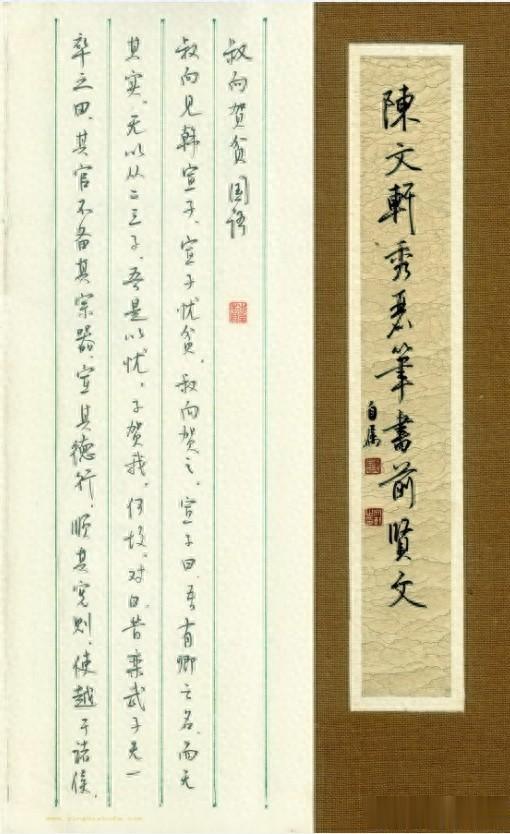 陳文軒秀麗筆書前賢文
自属
叔向贺贫 国语
叔向见韩宣子、宣子忧贫、叔向贺之。宣子曰、吾有卿之名、而无
其实、无以从二三子、吾是以忧。子贺我、何故。对曰、昔栾武子无一
卒之田、其官不备其宗器、宣其德行、顺其宪则、使越于诸侯、
www.yingbishufa.com